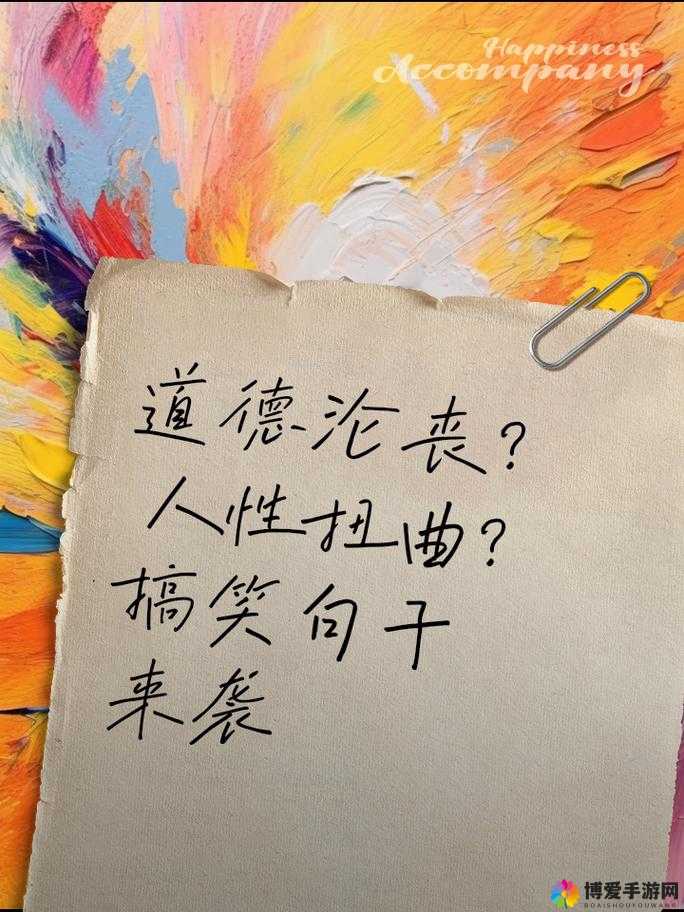 Happiness
Accompany
道德沦丧？
人性扭曲？
搞笑句子
来袭
博爱手游网
BOAISHOUYOUWANG